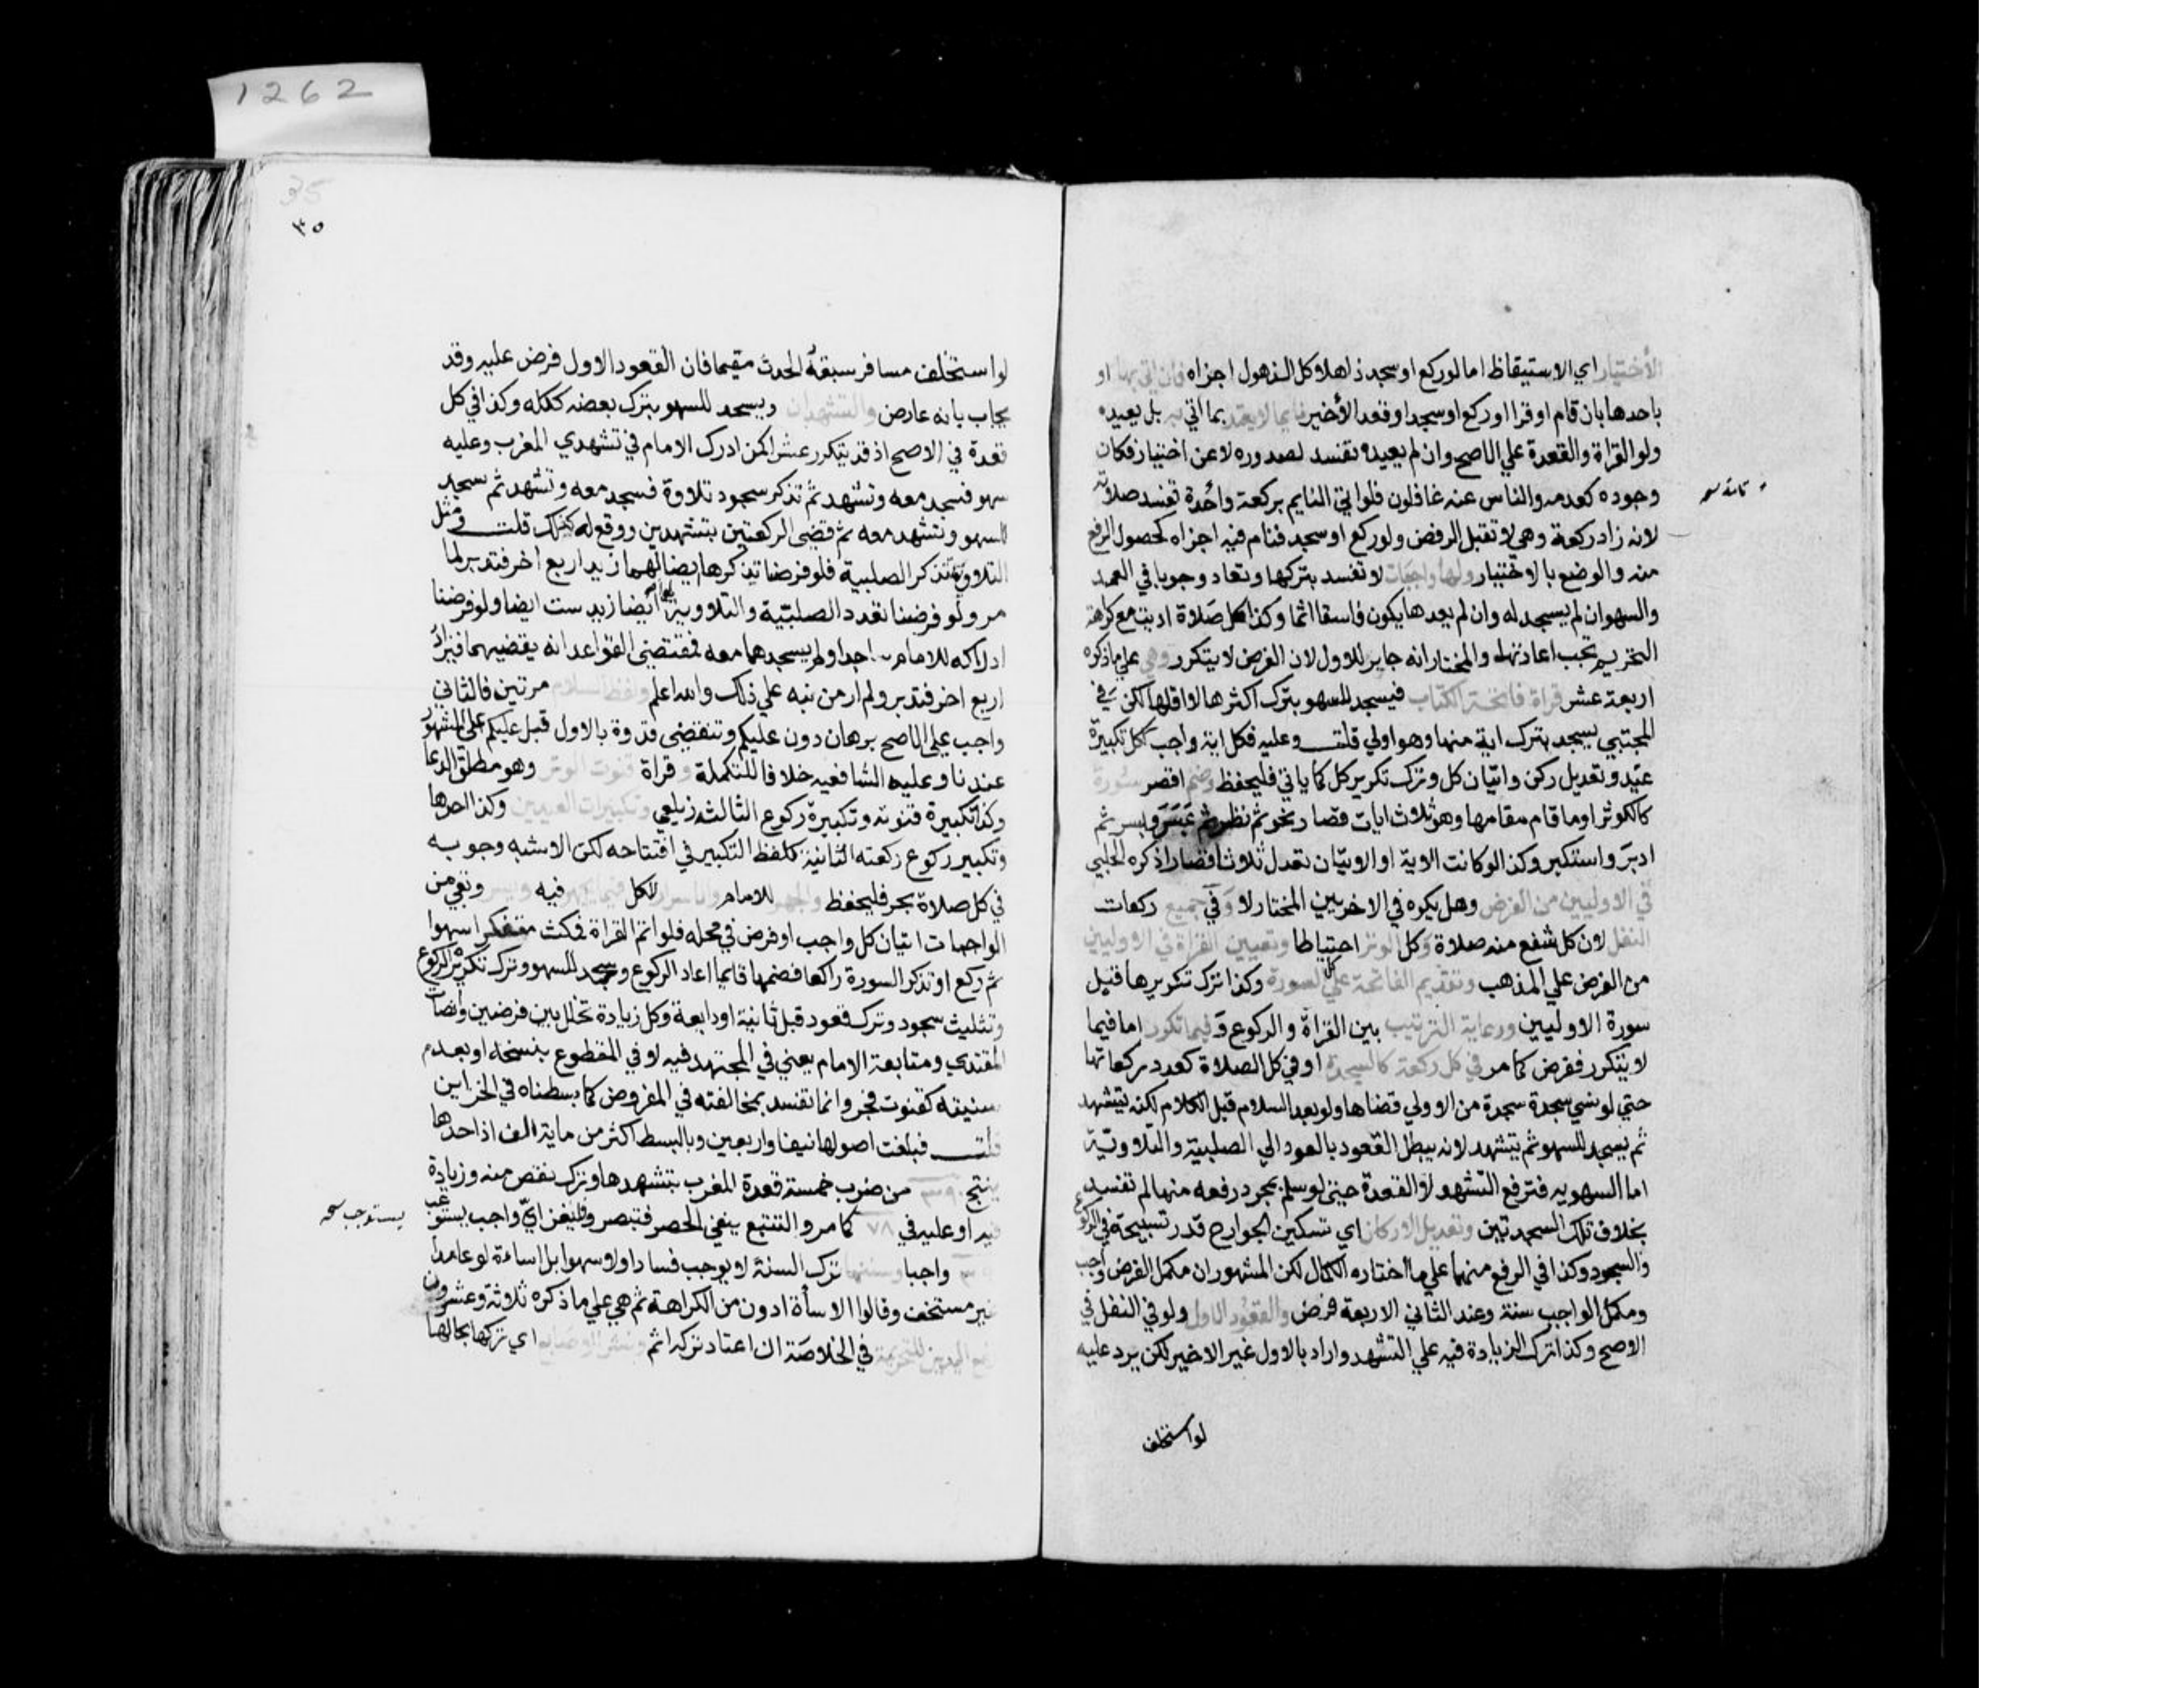 الأختيار اي الاستيقاظ اما لو ركع او سجد ذاهلا كل الذهول اجزاه فان اتي بها او
باحدها بان قام او قرا او ركع او سجد او قعد الأخير نايما لا يعتد بما اتي به بل يعيده
ولو القراة والقعدة علي الاصح وان لم يعيده تفسد لصدوره لا عن اختيار فكان
وجوده كعدمه والناس عنه غافلون فلو اتي النايم بركعة واحدة تفسد صلاته
لانه زاد ركعة وهي لا تقبل الرفض ولو ركع او سجد فنام فيه اجزاه لحصول الرفع
منه والوضع بالاختيار ولها واجبات لا تفسد بتركها وتعاد وجوبا في العمد
والسهو ان لم يسجد له وان لم يعدها يكون فاسقا اثما وكذا كل صلاة اديت مع كراهة
التحريم تجب اعادتها والمختار انه جابر للاول لان الفرض لا يتكرر وهي علي ما ذكره
اربعة عشر قراة فاتحة الكتاب فيسجد للسهو بترك اكثرها لا اقلها لكن في
المجتبي يسجد بترك اية منها وهو اولي قلت وعليه فكل اية واجب ككل تكبيرة
عيد وتعديل ركن واتيان كل وترك تكرير كل كما ياتي فليحفظ وضم اقصر سورة
كالكوثر او ما قام مقامها وهو ثلاث ايات قصار نحو ثم نظر ثم عبس وبسر ثم
ادبر واستكبر وكذا لو كانت الاية او الايتان تعدل ثلاثا قصارا ذكره الحلبي
في الاوليين من الفرض وهل يكره في الاخريين المختار لا وفي جميع ركعات
النفل لان كل شفع منه صلاة وكل الوتر احتياطا وتعيين القراة في الاوليين
من الفرض علي المذهب وتقديم الفاتحة علي كل السورة وكذا ترك تكريرها قبل
سورة الاوليين ورعاية الترتيب بين القراة والركوع وفيما تكرر اما فيما
لا يتكرر ففرض كما مر في كل ركعة كالسجدة او في كل الصلاة كعدد ركعاتها
حتي لو نسي سجدة سجدة من الاولي قضاها ولو بعد السلام قبل الكلام لكنه يتشهد
ثم يسجد للسهو ثم يتشهد لانه يبطل القعود بالعود الي الصلبية والتلاوتية
اما السهوية فترفع التشهد لا القعدة حتي لو سلم بمجرد رفعه منها لم تفسد
بخلاف تلك السجدتين وتعديل الاركان اي تسكين الجوارح قدر تسبيحة في الركوع
والسجود وكذا في الرفع منهما علي ما اختاره الكمال لكن المشهور ان مكمل الفرض واجب
ومكمل الواجب سنة وعند الثاني الاربعة فرض والقعود الاول ولو في النفل في
الاصح وكذا ترك الزيادة فيه علي التشهد واراد بالاول غير الاخير لكن يرد عليه
لو استخلف
1262
35
٣٥
لو استخلف مسافر سبقه الحدث مقيما فان القعود الاول فرض عليه وقد
يجاب بانه عارض والتشهدان ويسجد للسهو بترك بعضه ككله وكذا في كل
قعدة في الاصح اذ قد يتكرر عشرا كمن ادرك الامام في تشهدي المغرب وعليه
سهو فسجد معه وتشهد ثم تذكر سجود تلاوة فسجد معه وتشهد ثم سجد
للسهو وتشهد معه ثم قضي الركعتين بتشهدين ووقع له كذلك قلت ومثل
التلاوية تذكر الصلبية فلو فرضنا تذكرها ايضا لهما زيد اربع اخر فتدبر لما
مر ولو فرضنا تعدد الصلبيّة والتلاوية لها ايضا زيد ست ايضا ولو فرضنا
ادراكه للامام ساجدا ولم يسجدهما معه فمقتضي القواعد انه يقضيهما فيزاد
اربع اخر فتدبر ولم ار من نبه علي ذلك والله اعلم ولفظ السلام مرتين فالثاني
واجب علي الاصح برهان دون عليكم وتنقضي قدوة بالاول قبل عليكم علي المشهور
عندنا وعليه الشافعيه خلافا للتكملة وقراة قنوت الوتر وهو مطلق الدعا
وكذا تكبيرة قنوته وتكبيرة ركوع الثالثه زيلعي وتكبيرات العيدين وكذا احدها
وتكبير ركوع ركعته الثانية كلفظ التكبير في افتتاحه لكن الاشبه وجوبه
في كل صلاة بحر فليحفظ والجهر للامام والاسرار للكل فيما يجهر فيه ويسر وبقي من
الواجبات اتيان كل واجب او فرض في محله فلو اتم القراة فمكث متفكرا سهوا
ثم ركع او تذكر السورة راكعا فضمها قايما اعاد الركوع وسجد للسهو وترك تكرير الركوع
وتثليث سجود وترك قعود قبل ثانية او رابعة وكل زيادة تخلل بين فرضين وانصات
المقتدي ومتابعة الامام يعني في المجتهد فيه لا في المقطوع بنسخه او بعدم
سنيته كقنوت فجر وانما تفسد بمخالفته في المفروض كما بسطناه في الخزاين
قلت فبلغت اصولها نيفا واربعين وبالبسط اكثر من ماية الف اذ احدها
ينتج ٣٩٠ من ضرب خمسة قعدة المغرب بتشهدها وترك نقص منه وزيادة
فيه او عليه في ٧٨ كما مر والتتبع ينفي الحصر فتبصر وفليغز اي واجب يستوعب
٣٩٠ واجبا وسننها ترك السنة لا يوجب فسادا ولا سهوا بل اساءة لو عامدا
غير مستخف وقالوا الاسأة ادون من الكراهة ثم هي علي ما ذكره ثلاثة وعشرون
رفع اليدين للتحريمة في الخلاصة ان اعتاد تركه اثم ونشر الاصابع اي تركها بحالها
يستوجب نسخه